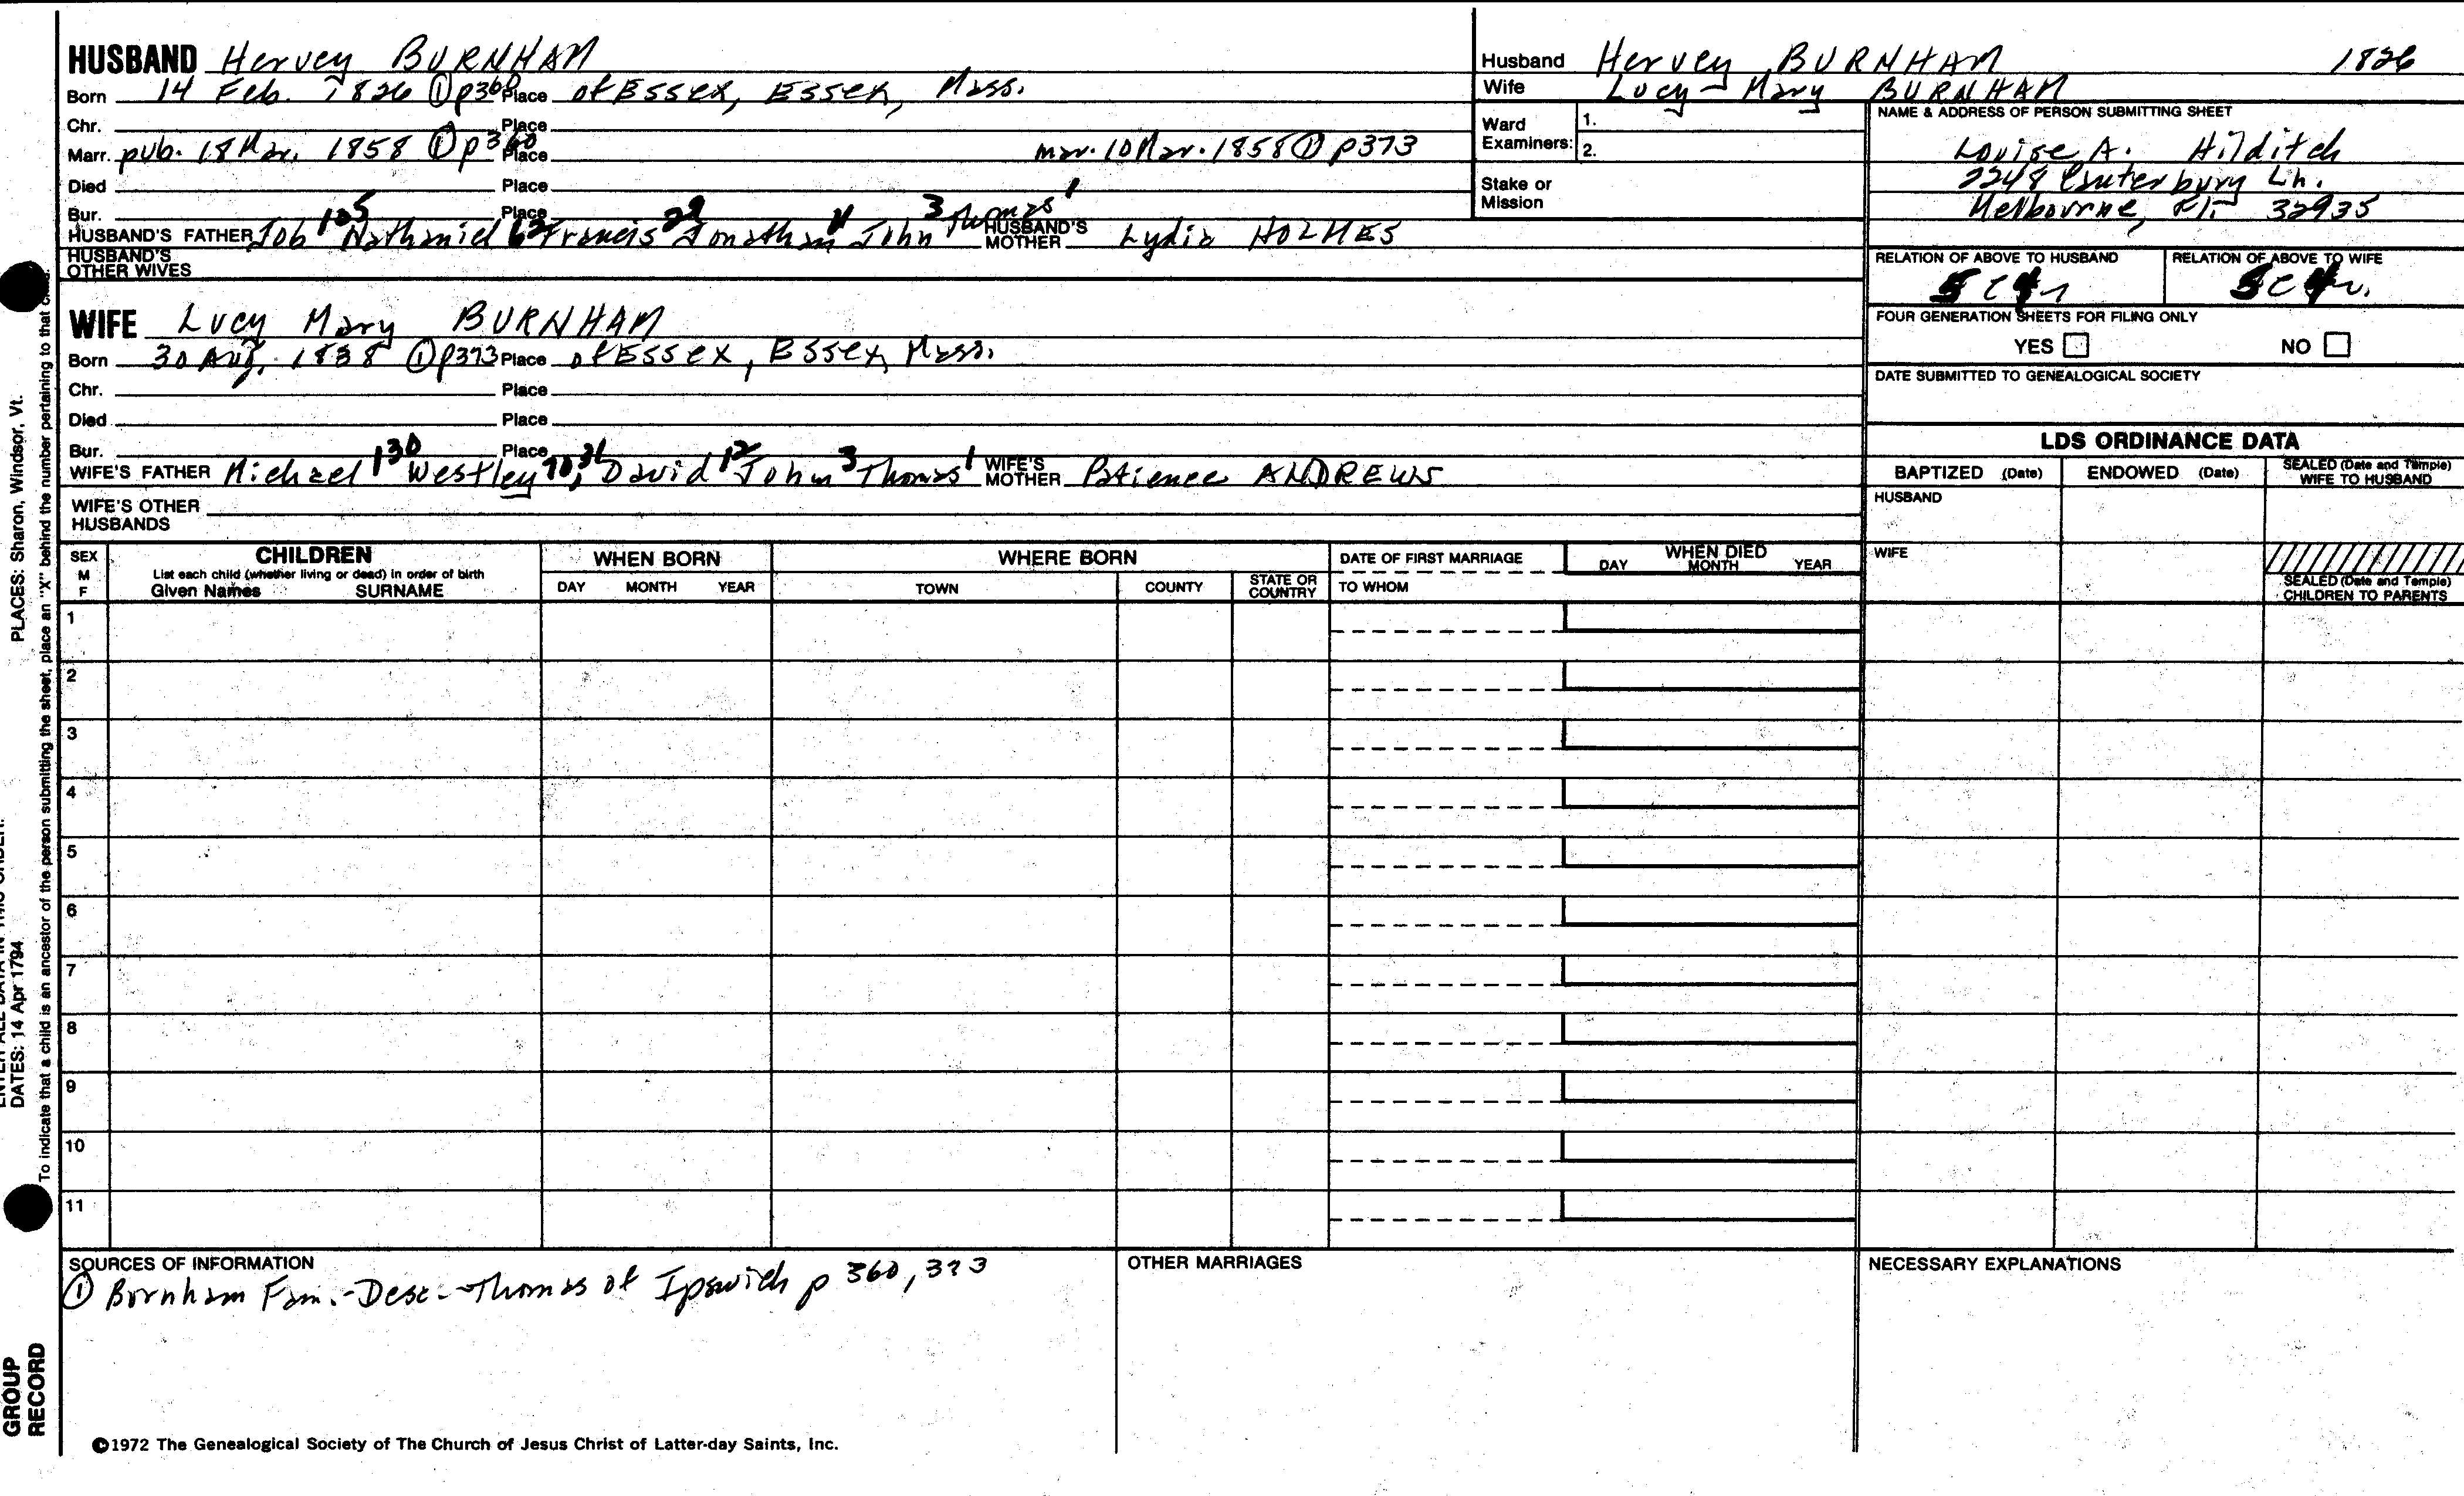 HUSBAND Hervey BURNHAM
Born 14 Feb. 1826 ① p360 Place of Essex, Essex, Mass.
Chr. Place
Marr. pub. 18 Mar. 1858 ① p360 Place mar. 10 Mar. 1858 ① p373
Died Place
Bur. Place
HUSBAND'S FATHER Job 125 Nathaniel 62 Francis 29 Jonathan John 3 Thomas 1 HUSBAND'S MOTHER Lydia HOLMES
HUSBAND'S OTHER WIVES
WIFE Lucy Mary BURNHAM
Born 30 Aug. 1838 ① p373 Place of Essex, Essex, Mass.
Chr. Place
Died Place
Bur. Place
WIFE'S FATHER Michael 130 Westley 70, 31 David 12 John 3 Thomas 1 WIFE'S MOTHER Patience ANDREWS
WIFE'S OTHER HUSBANDS
Husband Hervey BURNHAM 1826
Wife Lucy Mary BURNHAM
Ward Examiners: 1. 2.
Stake or Mission
NAME & ADDRESS OF PERSON SUBMITTING SHEET
Louise A. Hilditch
2248 Canterbury Ln.
Melbourne, Fl. 32935
RELATION OF ABOVE TO HUSBAND RELATION OF ABOVE TO WIFE
FOUR GENERATION SHEETS FOR FILING ONLY
YES NO
DATE SUBMITTED TO GENEALOGICAL SOCIETY
LDS ORDINANCE DATA
BAPTIZED (Date) ENDOWED (Date) SEALED (Date and Temple) WIFE TO HUSBAND
HUSBAND
WIFE
SEALED (Date and Temple) CHILDREN TO PARENTS
SEX M F
CHILDREN
List each child (whether living or dead) in order of birth
Given Names SURNAME
WHEN BORN
DAY MONTH YEAR
WHERE BORN
TOWN COUNTY STATE OR COUNTRY
DATE OF FIRST MARRIAGE
TO WHOM
WHEN DIED
DAY MONTH YEAR
1
2
3
4
5
6
7
8
9
10
11
SOURCES OF INFORMATION
① Burnham Fam.-Desc.-Thomas of Ipswich p 360, 373
OTHER MARRIAGES
NECESSARY EXPLANATIONS
©1972 The Genealogical Society of The Church of Jesus Christ of Latter-day Saints, Inc.
PLACES: Sharon, Windsor, Vt.
DATES: 14 Apr 1794
To indicate that a child is an ancestor of the person submitting the sheet, place an "X" behind the number pertaining to that
GROUP
RECORD